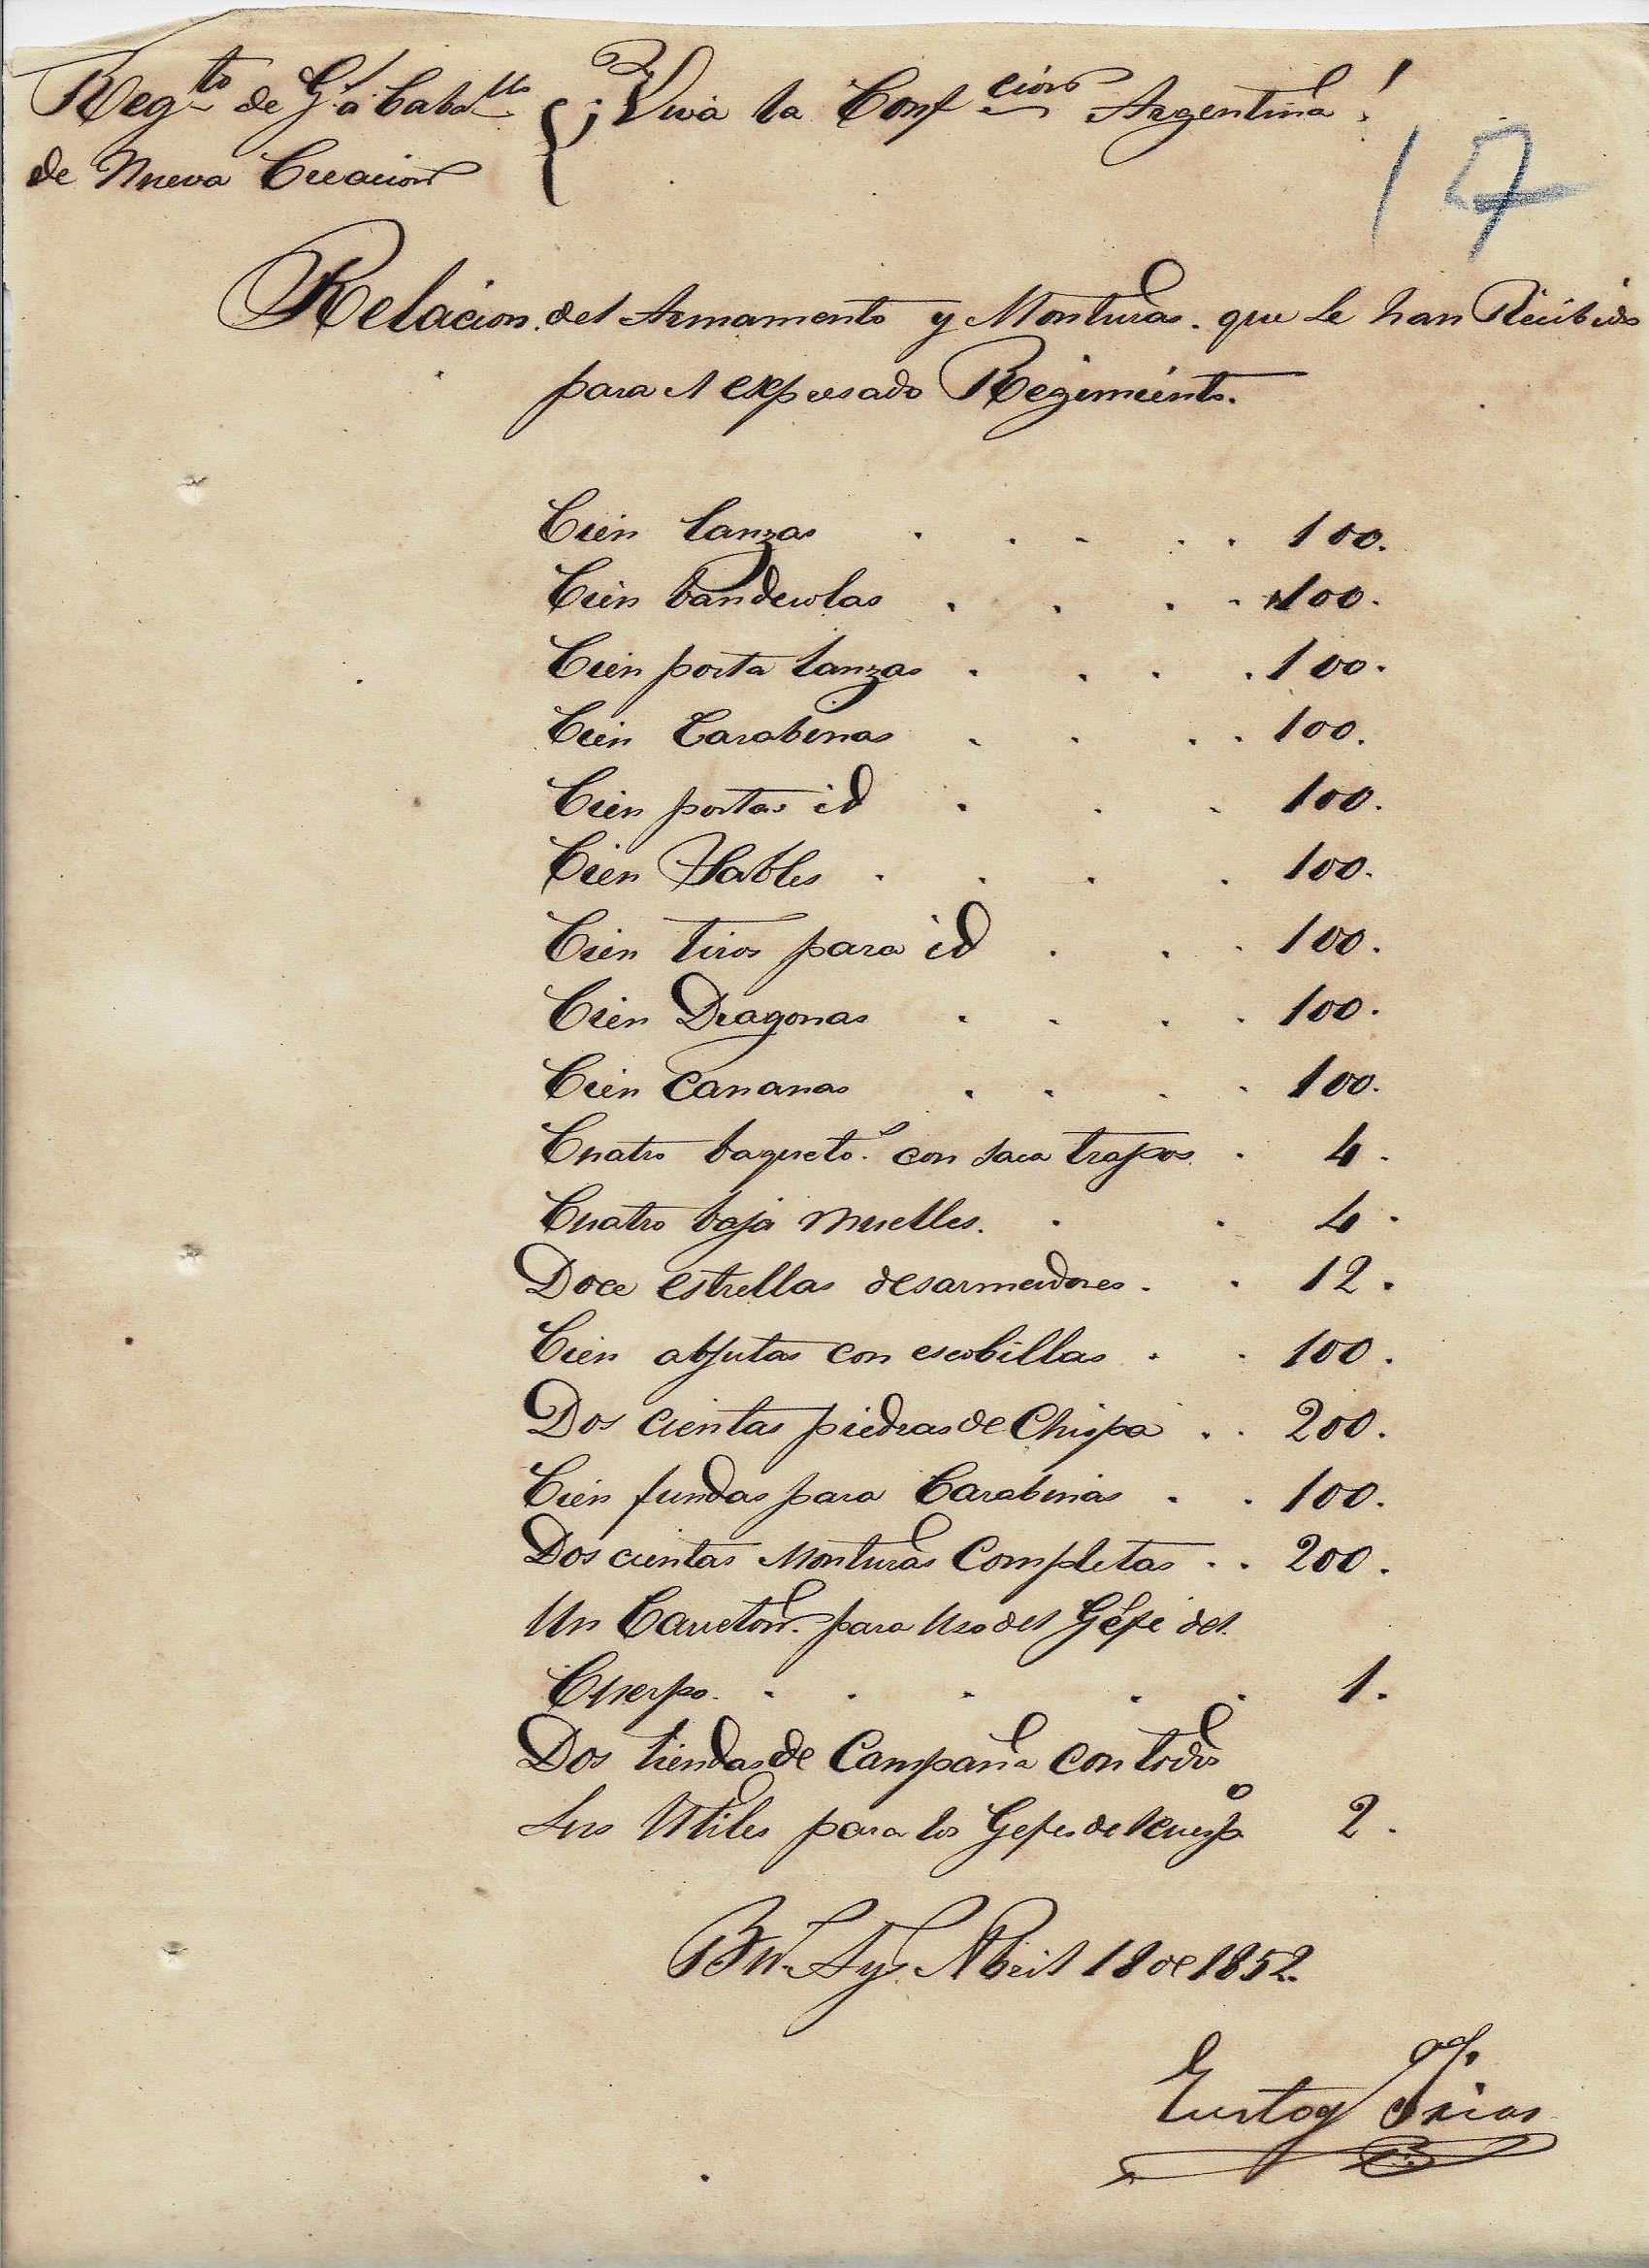 Reg.to de G.s a Cab.llo ¡Viva la Conf.cion Argentina!
de Nueva Creacion
17
Relacion del Armamento y Monturas que se han Recibido
para el expresado Regimiento.
Cien lanzas . . . . . 100.
Cien banderolas . . . . 100.
Cien porta lanzas . . . . 100.
Cien Carabinas . . . . 100.
Cien portas id . . . 100.
Cien Sables . . . . 100.
Cien tiros para id . . . 100.
Cien Dragonas . . . . 100.
Cien Cananas . . . . 100.
Cuatro baquet.s con saca trapos . 4.
Cuatro baja muelles. . . 4.
Doce estrellas desarmadores . . 12.
Cien abujitas con escobillas . . 100.
Dos cientas piedras de Chispa . . 200.
Cien fundas para Carabinas . . 100.
Dos cientas Monturas Completas . . 200.
Un Carreton para Uso del Géfe del
Cuerpo. . . . . . 1.
Dos tiendas de Campaña con todos
sus Utiles para los Gefes del cuerpo 2.
Bu.s Ay.s Abril 18 de 1852.
Eustoq.o Frias